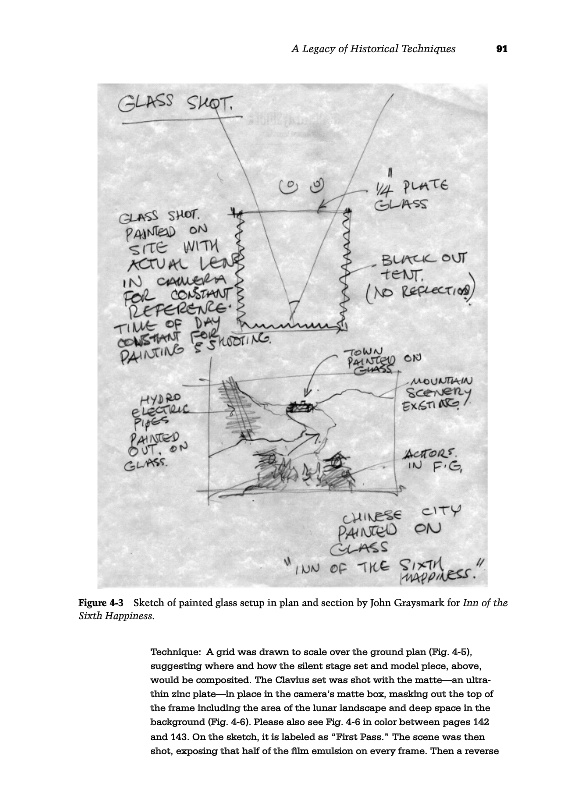 A Legacy of Historical Techniques 91
GLASS SHOT.
1/4" PLATE
GLASS
GLASS SHOT.
PAINTED ON
SITE WITH
ACTUAL LENS
IN CAMERA
FOR CONSTANT
REFERENCE.
TIME OF DAY
CONSTANT FOR
PAINTING & SHOOTING.
BLACK OUT
TENT.
(NO REFLECTION)
TOWN
PAINTED ON
GLASS
MOUNTAIN
SCENERY
EXISTING.
HYDRO
ELECTRIC
PIPES
PAINTED
OUT, ON
GLASS.
ACTORS.
IN F.G,
CHINESE CITY
PAINTED ON
GLASS
"INN OF THE SIXTH
HAPPINESS."
Figure 4-3 Sketch of painted glass setup in plan and section by John Graysmark for Inn of the
Sixth Happiness.
Technique: A grid was drawn to scale over the ground plan (Fig. 4-5),
suggesting where and how the silent stage set and model piece, above,
would be composited. The Clavius set was shot with the matte—an ultra-
thin zinc plate—in place in the camera's matte box, masking out the top of
the frame including the area of the lunar landscape and deep space in the
background (Fig. 4-6). Please also see Fig. 4-6 in color between pages 142
and 143. On the sketch, it is labeled as "First Pass." The scene was then
shot, exposing that half of the film emulsion on every frame. Then a reverse